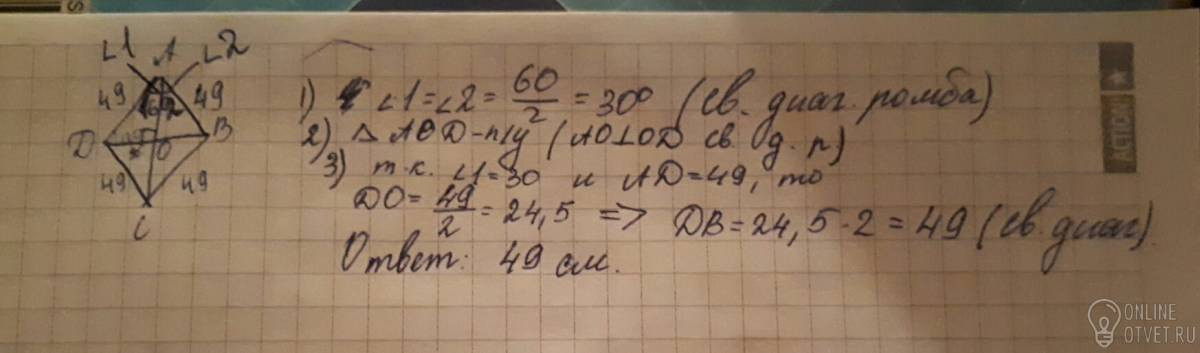 ∠1 A ∠2
49 49
D O B
49 49
C
1) ∠1=∠2= 60/2 = 30° (св. диаг. ромба)
2) △ AOD-п/у (AO⊥OD св. д. р)
3) т.к. ∠1=30 и AD=49, то
DO= 49/2 = 24,5 => DB=24,5·2=49 (св. диаг).
Ответ: 49 см.
ACTION
ONLINE
OTVET.RU